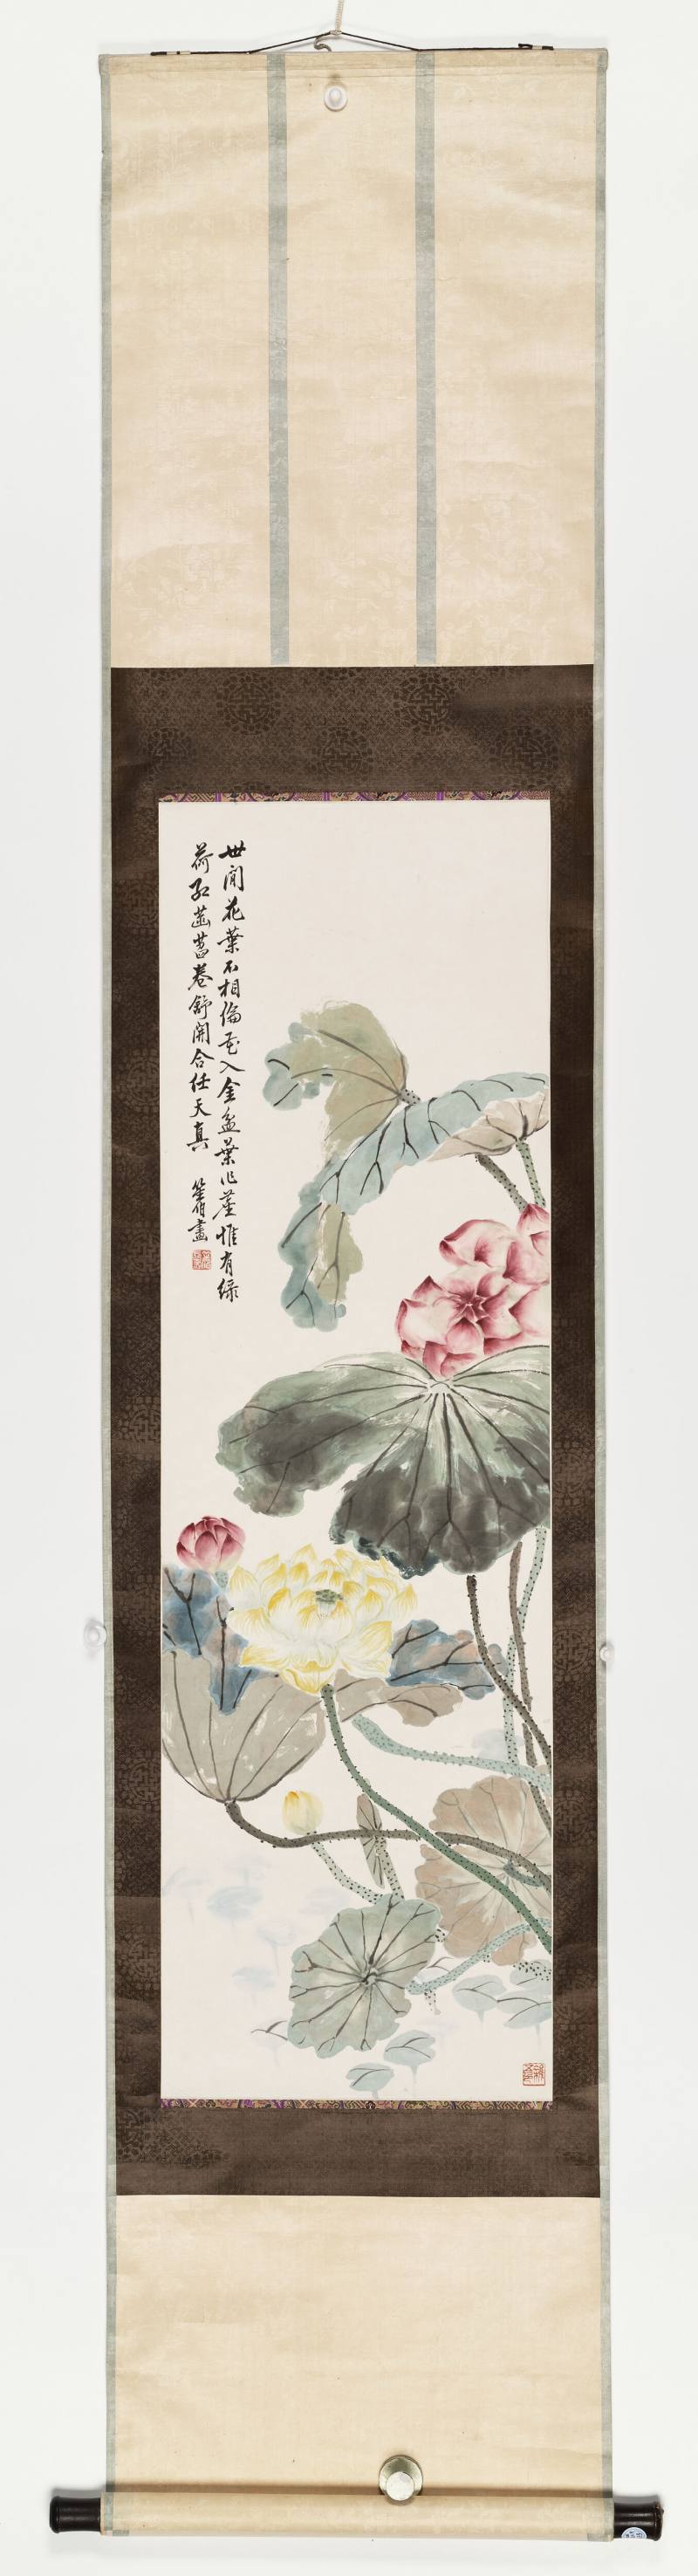 世間花葉不相倫花入金盆葉作塵惟有綠
荷紅菡萏卷舒開合任天真
畫